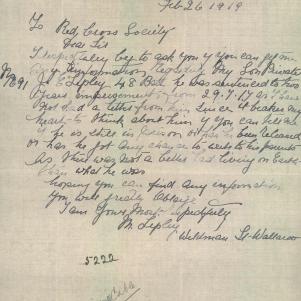 Feb 26 1919
To Red Cross Society
Dear Sir
I respectfully beg to ask you if you can get me
Any information regarding My Son Private
No 91 J. E. Lipley 48 Batt he was sentenced to two
Years Imprisonment from 29.7.17 as I have
Not had a letter from him since it breaks my
heart to think about him if you can tell me
if he is still in prison or has he been released
or has he got any chance to write to his parents
As their was not a better lad living on Earth
than what he was
hoping you can find any information
You will greatly oblige
I am Yours Most Respectfully
M. Lipley
Wildman St Wallaroo
5222